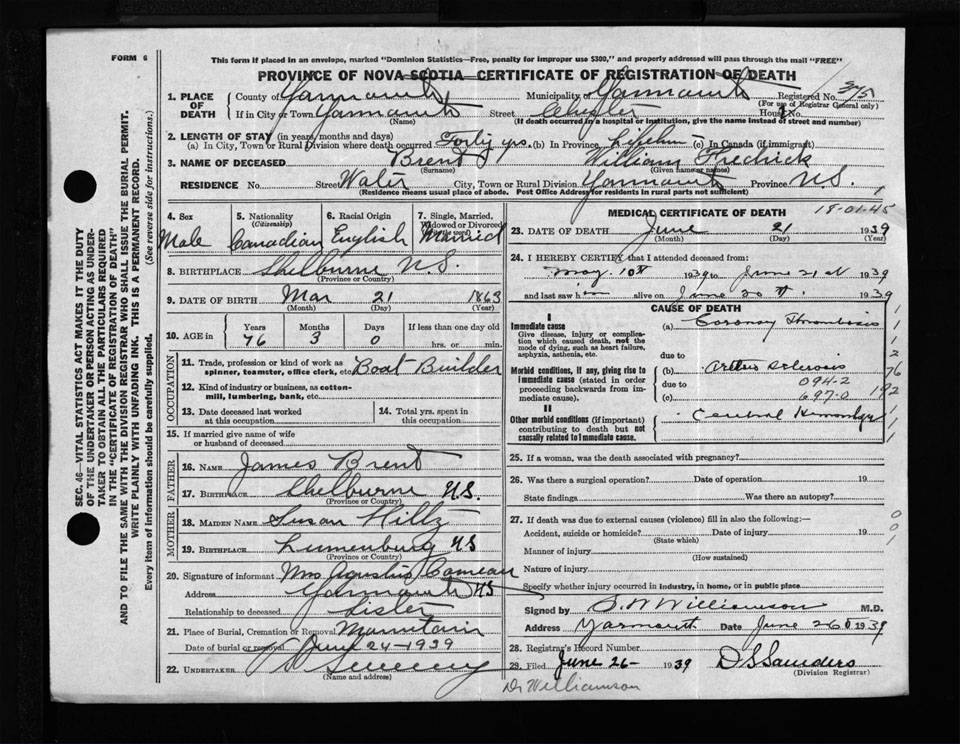 FORM 6
This form if placed in an envelope, marked "Dominion Statistics—Free, penalty for improper use $300," and properly addressed will pass through the mail "FREE"
PROVINCE OF NOVA SCOTIA—CERTIFICATE OF REGISTRATION OF DEATH
1. PLACE OF DEATH
County of Yarmouth Municipality of Yarmouth Registered No. 315
(For use of Registrar General only)
If in City or Town Yarmouth Street House
(Name) (If death occurred in a hospital or institution, give the name instead of street and number)
2. LENGTH OF STAY (in years, months and days)
(a) In City, Town or Rural Division where death occurred Forty yrs. (b) In Province Lifetime (c) In Canada (if immigrant)
3. NAME OF DECEASED Brent William Fredrick
(Surname) (Given name or names)
RESIDENCE No. Street Water City, Town or Rural Division Yarmouth Province N.S.
(Residence means usual place of abode. Post Office Address for residents in rural parts not sufficient)
SEC. 46—VITAL STATISTICS ACT MAKES IT THE DUTY
OF THE UNDERTAKER OR PERSON ACTING AS UNDER-
TAKER TO OBTAIN ALL THE PARTICULARS REQUIRED
IN THE "CERTIFICATE OF REGISTRATION OF DEATH"
AND TO FILE THE SAME WITH THE DIVISION REGISTRAR WHO SHALL ISSUE THE BURIAL PERMIT.
WRITE PLAINLY WITH UNFADING INK. THIS IS A PERMANENT RECORD.
Every item of information should be carefully supplied. (See reverse side for instructions.)
4. Sex Male
5. Nationality (Citizenship) Canadian
6. Racial Origin English
7. Single, Married, Widowed or Divorced Married
8. BIRTHPLACE Shelburne N.S.
(Province or Country)
9. DATE OF BIRTH Mar 21 1863
(Month) (Day) (Year)
10. AGE in Years Months Days If less than one day old
76 3 0 hrs. or min.
OCCUPATION
11. Trade, profession or kind of work as
spinner, teamster, office clerk, etc. Boat Builder
12. Kind of industry or business, as cotton-
mill, lumbering, bank, etc.
13. Date deceased last worked
at this occupation
14. Total yrs. spent in
this occupation
15. If married give name of wife
or husband of deceased
FATHER
16. NAME James Brent
17. BIRTHPLACE Shelburne N.S.
(Province or Country)
MOTHER
18. MAIDEN NAME Susan Hiltz
19. BIRTHPLACE Lunenburg NS
(Province or Country)
20. Signature of informant Mrs Agustus Comeau
Address Yarmouth NS
Relationship to deceased Sister
21. Place of Burial, Cremation or Removal Mountain
Date of burial or removal June 24-1939
22. UNDERTAKER Sweeny
(Name and address)
MEDICAL CERTIFICATE OF DEATH 18-01-45
23. DATE OF DEATH June 21 1939
(Month) (Day) (Year)
24. I HEREBY CERTIFY that I attended deceased from:
May 10th 1939 to June 21st 1939
and last saw him alive on June 20th 1939
CAUSE OF DEATH
I
Immediate cause (a) Coronary Thrombosis
Give disease, injury or complica-
tion which caused death, not the
mode of dying, such as heart failure,
asphyxia, asthenia, etc.
due to
Morbid conditions, if any, giving rise to
immediate cause (stated in order
proceeding backwards from im-
mediate cause).
(b) Arterio sclerosis
due to 094-2
(c) 697-0
192
76
II
Other morbid conditions (if important)
contributing to death but not
causally related to immediate cause.
Cerebral Hemorrhage
25. If a woman, was the death associated with pregnancy?
26. Was there a surgical operation? Date of operation 19
State findings Was there an autopsy?
27. If death was due to external causes (violence) fill in also the following:—
Accident, suicide or homicide? Date of injury 19
(State which)
Manner of injury
(How sustained)
Nature of injury
Specify whether injury occurred in industry, in home, or in public place
Signed by S. W. Williamson M.D.
Address Yarmouth Date June 26 1939
28. Registrar's Record Number
29. Filed June 26- 1939 D S Saunders
(Division Registrar)
Dr Williamson